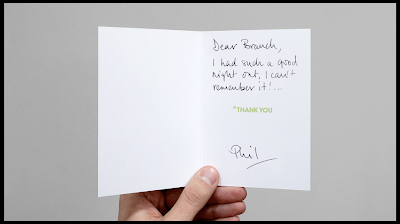 Dear Branch,
I had such a good
night out, I can't
remember it!...
*THANK YOU
Phil